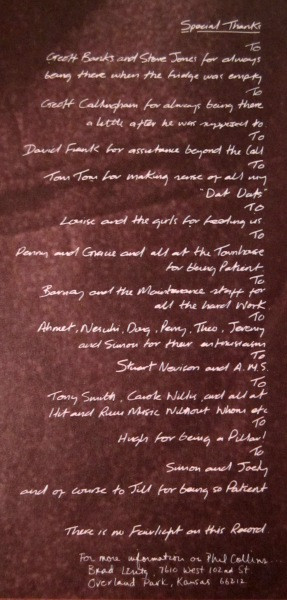 Special Thanks
To
Geoff Banks and Steve Jones for always
being there when the fridge was empty
To
Geoff Callingham for always being there
a little after he was supposed to
To
David Frank for assistance beyond the call
To
Tom Tom for making sense of all my
"Dat Dats"
To
Louise and the girls for feeding us
To
Penny and Gracie and all at the Townhouse
for being Patient
To
Barney and the Maintenance staff for
all the hard Work
To
Ahmet, Nesuhi, Doug, Perry, Theo, Jeremy
and Simon for their enthusiasm
To
Stuart Nevison and A.M.S.
To
Tony Smith, Carole Willis and all at
Hit and Run Music Without Whom etc
To
Hugh for being a Pillar!
To
Simon and Joely
and of course to Jill for being so Patient
There is no Fairlight on this Record
For more information on Phil Collins...
Brad Lentz, 7610 West 102nd St
Overland Park, Kansas 66212